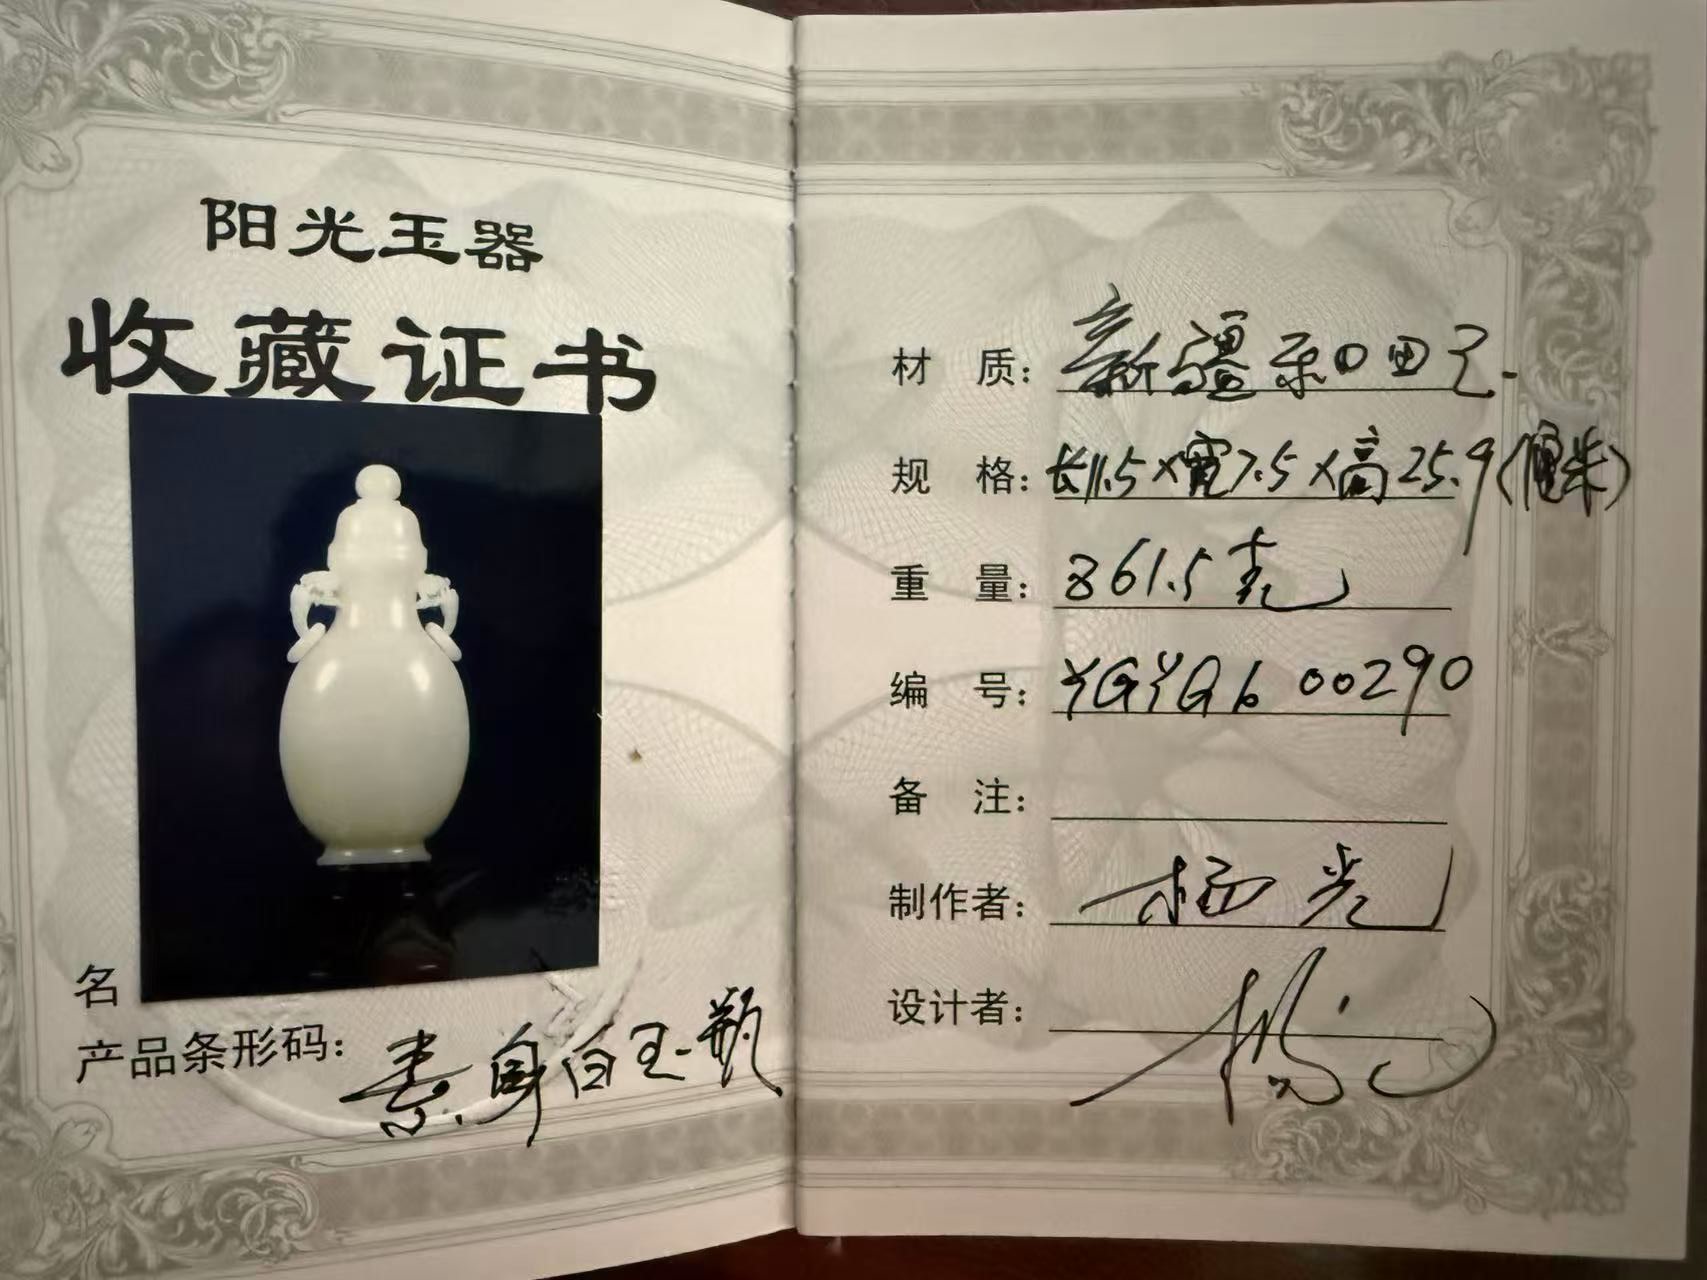 阳光玉器
收藏证书
名
产品条形码：素身白玉瓶
材 质：新疆和田玉
规 格：长11.5×宽7.5×高25.9（厘米）
重 量：861.5克
编 号：YGYQb 00290
备 注：
制作者：杨光
设计者：杨光